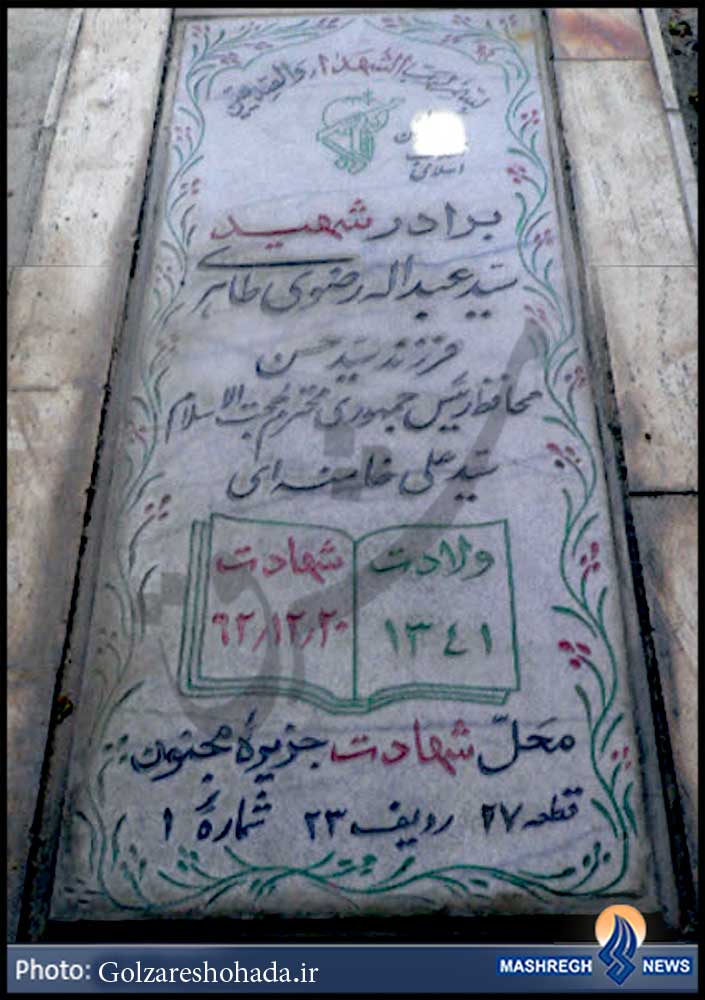 بسم رب الشهداء والصدیقین
اسلامی
برادر شهید
سید عبداله رضوی طاهری
فرزند سید حسن
محافظ رئیس جمهوری محترم حجت الاسلام
سید علی خامنه ای
ولادت شهادت
۱۳۴۱ ۶۲/۱۲/۲۰
محلّ شهادت جزیرهٔ مجنون
قطعه ۲۷ رویف ۲۳ شمارهٔ ۱
Photo: Golzareshohada.ir
MASHREGH NEWS